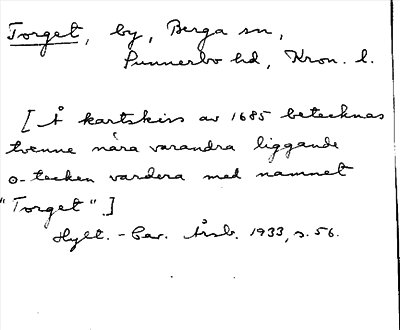 Torget, by, Berga sn,
Sunnerbo hd, Kron. l.
[Å kartskiss av 1685 betecknas
tvenne nära varandra liggande
o-tecken vardera med namnet
"Torget".]
Hylt.-Cav. Årsb. 1933, s. 56.